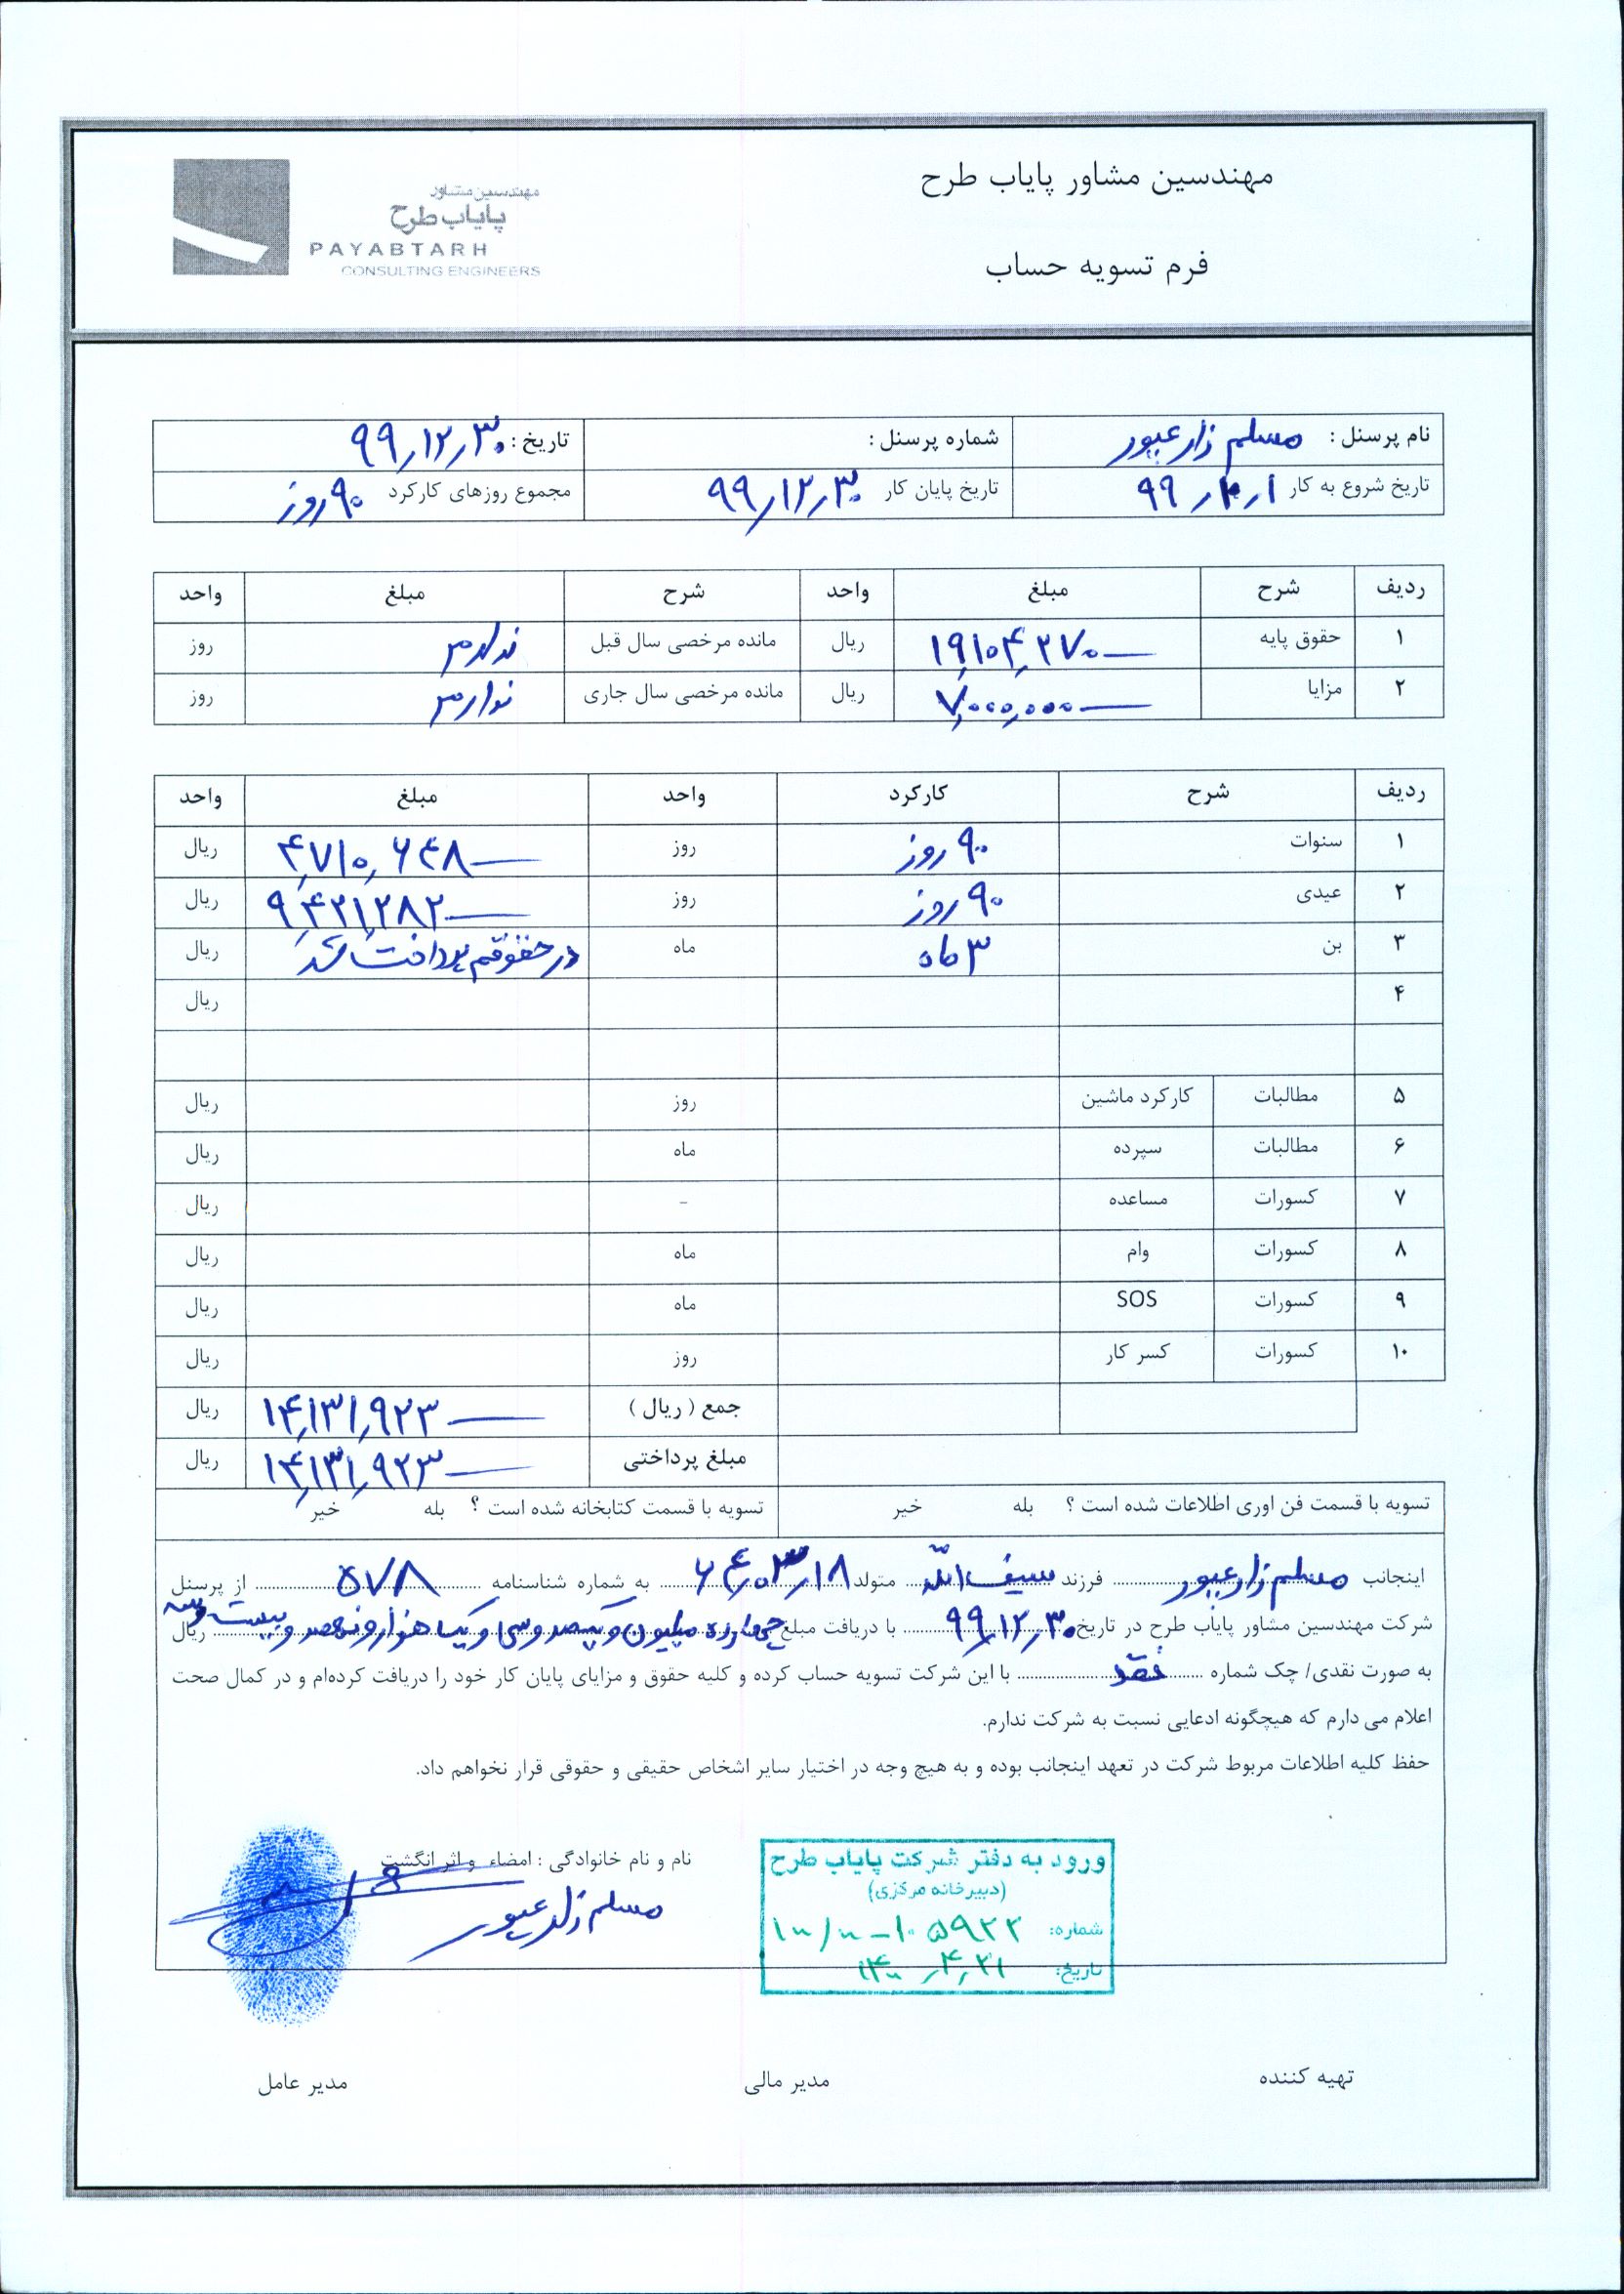 مهندسین مشاور پایاب طرح
مهندسین مشاور
پایاب طرح
PAYABTARH
CONSULTING ENGINEERS
فرم تسویه حساب
نام پرسنل : مسلم زارعپور شماره پرسنل : تاریخ : ۹۹,۱۲,۳۰
تاریخ شروع به کار تاریخ پایان کار ۹۹,۱۲,۳۰ مجموع روزهای کارکرد ۹۰ روز
ردیف شرح مبلغ واحد شرح مبلغ واحد
۱ حقوق پایه ۱۹,۱۰۴,۲۷۰ ریال مانده مرخصی سال قبل ندارم روز
۲ مزایا ۷,۰۰۰,۰۰۰ ریال مانده مرخصی سال جاری ندارم روز
ردیف شرح کارکرد واحد مبلغ واحد
۱ سنوات ۹۰ روز روز ۴,۷۱۰,۶۴۸ ریال
۲ عیدی ۹۰ روز روز ۹,۴۲۱,۲۸۲ ریال
۳ بن ۳ ماه ماه در حقوقم پرداخت شد ریال
۴ ریال
۵ مطالبات کارکرد ماشین روز ریال
۶ مطالبات سپرده ماه ریال
۷ کسورات مساعده - ریال
۸ کسورات وام ماه ریال
۹ کسورات SOS ماه ریال
۱۰ کسورات کسر کار روز ریال
جمع ( ریال ) ۱۴,۱۳۱,۹۲۳ ریال
مبلغ پرداختی ۱۴,۱۳۱,۹۲۳ ریال
تسویه با قسمت فن اوری اطلاعات شده است ؟ بله خیر تسویه با قسمت کتابخانه شده است ؟ بله خیر
اینجانب مسلم زارعپور فرزند سیف الله متولد ۶۴,۰۳,۱۸ به شماره شناسنامه ۵۷۸ از پرسنل
شرکت مهندسین مشاور پایاب طرح در تاریخ ۹۹,۱۲,۳۰ با دریافت مبلغ چهارده میلیون و یکصد و سی و یک هزار و نهصد و بیست و سه ریال
به صورت نقدی/ چک شماره نقد با این شرکت تسویه حساب کرده و کلیه حقوق و مزایای پایان کار خود را دریافت کرده‌ام و در کمال صحت
اعلام می دارم که هیچگونه ادعایی نسبت به شرکت ندارم.
حفظ کلیه اطلاعات مربوط شرکت در تعهد اینجانب بوده و به هیچ وجه در اختیار سایر اشخاص حقیقی و حقوقی قرار نخواهم داد.
نام و نام خانوادگی : امضاء و اثر انگشت
مسلم زارعپور
ورود به دفتر شرکت پایاب طرح
(دبیرخانه مرکزی)
شماره:
تاریخ: ۱۴۰۰,۴,۲۱
تهیه کننده مدیر مالی مدیر عامل